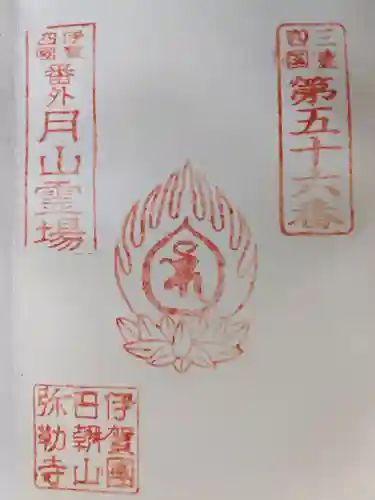 三重
四国
第五十六番
伊賀
四國
番外
月山霊場
伊賀國
日朝山
弥勒寺